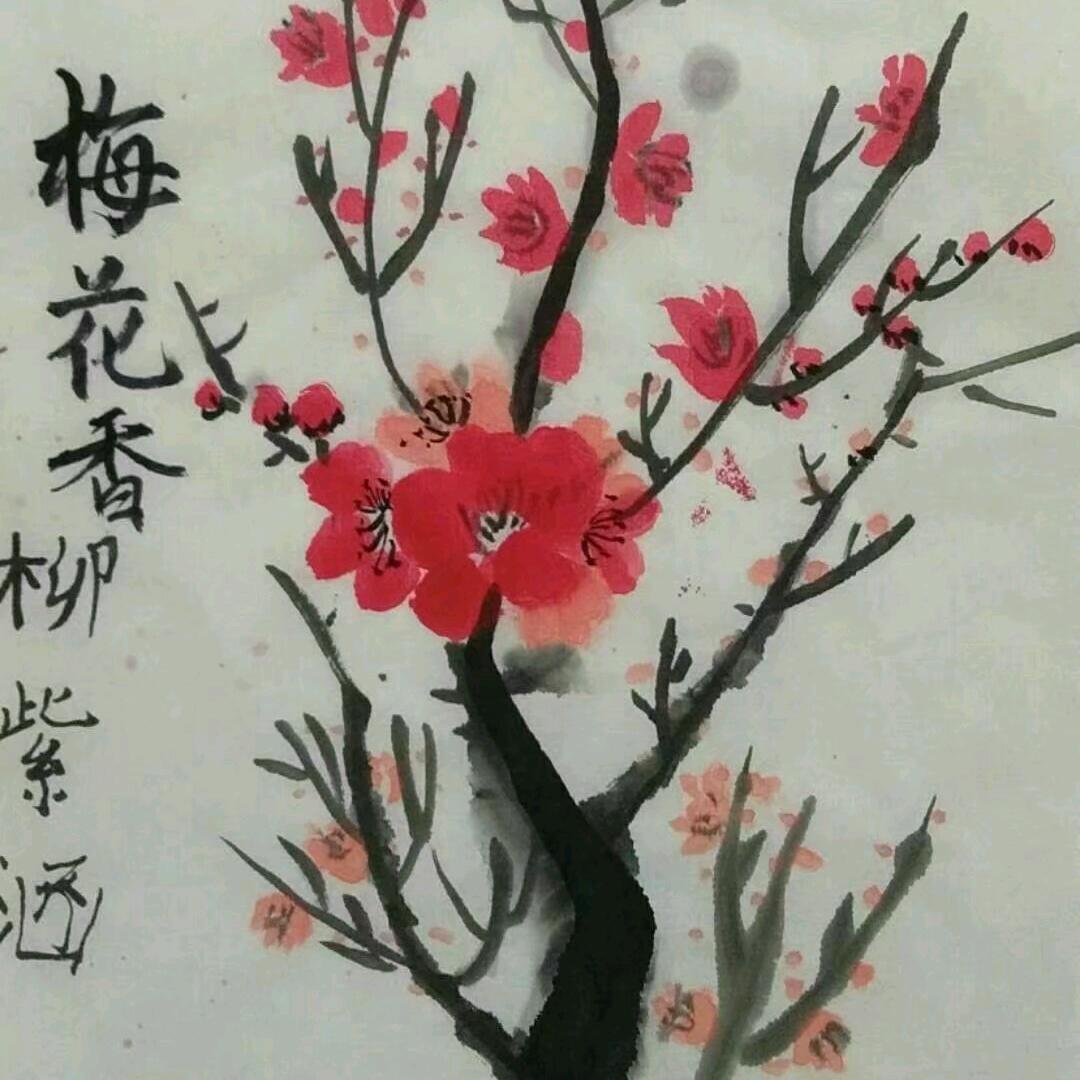 梅花香
柳紫涵